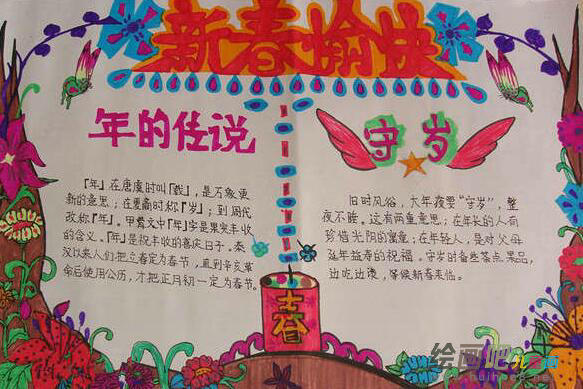 新春愉快
年的传说
「年」在唐虞时叫「载」，是万象更
新的意思；在夏商时称「岁」；到周代
改称「年」。甲骨文中「年」字是果实丰收
的含义。「年」是祝丰收的喜庆日子。秦
汉以来人们把立春定为春节，直到辛亥革
命后使用公历，才把正月初一定为春节。
守岁
旧时风俗，大年夜要“守岁”，整
夜不睡。这有两重意思；在年长的人有
珍惜光阴的寓意；在年轻人，是对父母
延年益寿的祝福。守岁时备些茶点果品，
边吃边谈，等候新春来临。
春
绘画吧